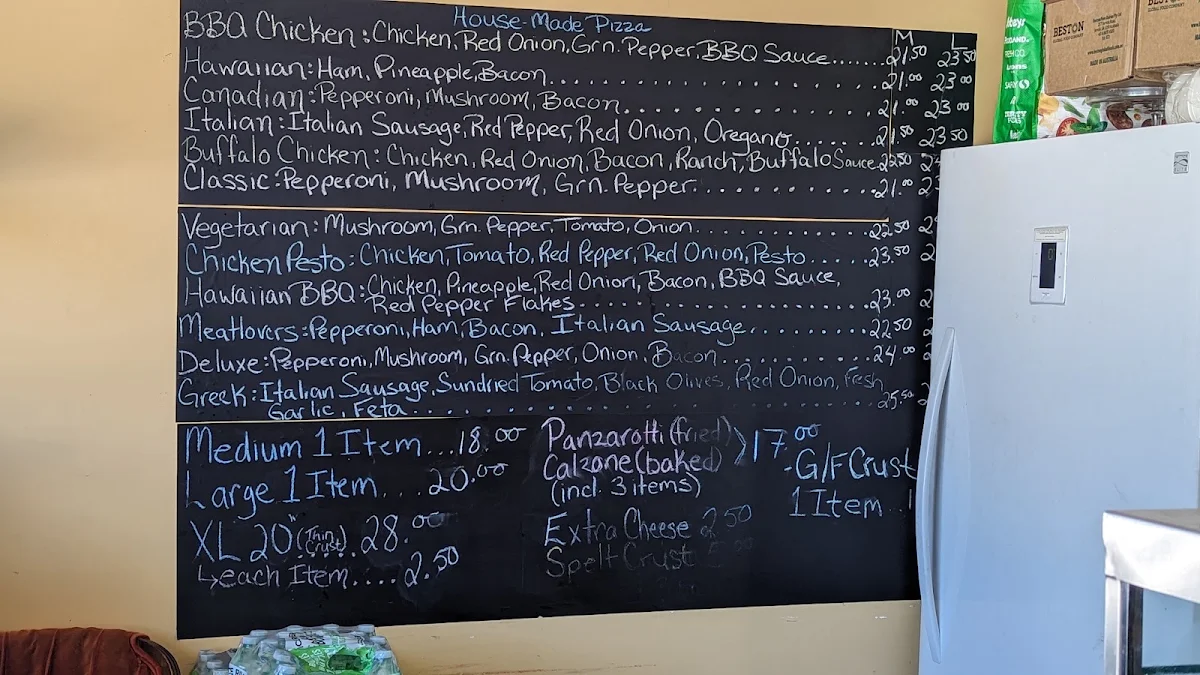 House-Made Pizza
M L
BBQ Chicken: Chicken, Red Onion, Grn. Pepper, BBQ Sauce......21.50 23.50
Hawaiian: Ham, Pineapple, Bacon..................21.00 23.00
Canadian: Pepperoni, Mushroom, Bacon..............21.00 23.00
Italian: Italian Sausage, Red Pepper, Red Onion, Oregano......21.50 23.50
Buffalo Chicken: Chicken, Red Onion, Bacon, Ranch, Buffalo Sauce..22.50
Classic: Pepperoni, Mushroom, Grn. Pepper............21.00
Vegetarian: Mushroom, Grn. Pepper, Tomato, Onion............22.50
Chicken Pesto: Chicken, Tomato, Red Pepper, Red Onion, Pesto.....23.50
Hawaiian BBQ: Chicken, Pineapple, Red Onion, Bacon, BBQ Sauce,
Red Pepper Flakes..................23.00
Meatlovers: Pepperoni, Ham, Bacon, Italian Sausage.........22.50
Deluxe: Pepperoni, Mushroom, Grn. Pepper, Onion, Bacon...........24.00
Greek: Italian Sausage, Sundried Tomato, Black Olives, Red Onion, Fresh
Garlic, Feta..............................25.50
Medium 1 Item...18.00
Large 1 Item....20.00
XL 20" (Thin Crust)..28.00
↳each Item....2.50
Panzarotti (fried)
Calzone (baked) >17.00
(incl. 3 items)
Extra Cheese 2.50
Spelt Crust
-G/F Crust
1 Item
BESTON